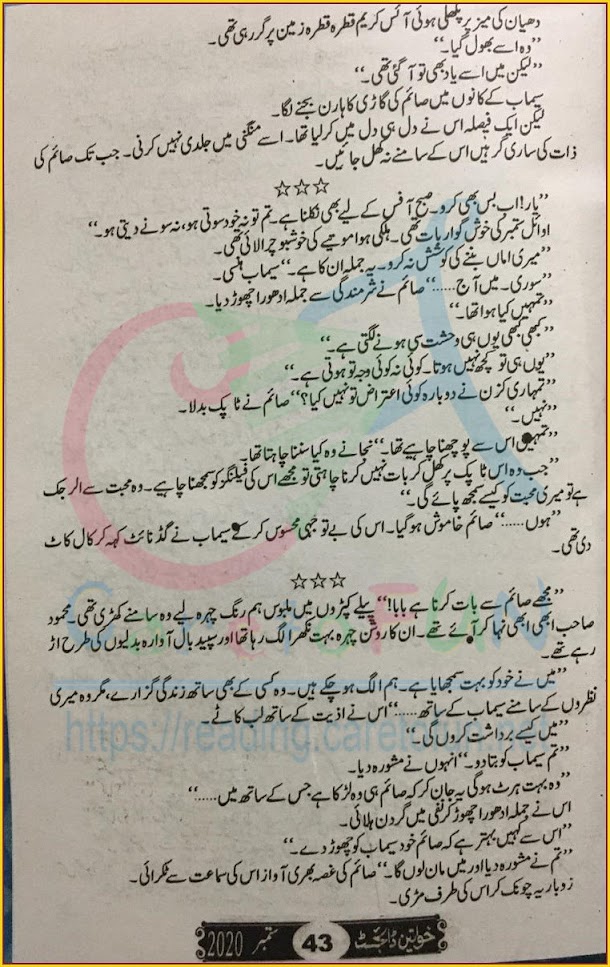 دھیان کی میز پر پگھلی ہوئی آئس کریم قطرہ قطرہ زمین پر گر رہی تھی۔
’’وہ اسے بھول گیا۔‘‘
’’لیکن میں اسے یاد بھی تو آ گئی تھی۔‘‘
سیماب کے کانوں میں صائم کی گاڑی کا ہارن بجنے لگا۔
لیکن ایک فیصلہ اس نے دل ہی دل میں کر لیا تھا۔ اسے منگنی میں جلدی نہیں کرنی۔ جب تک صائم کی
ذات کی ساری گرہیں اس کے سامنے نہ کھل جائیں۔
☆☆☆
’’یار! اب بس بھی کرو۔ صبح آفس کے لیے بھی نکلنا ہے۔ تم تو نہ خود سوتی ہو، نہ سونے دیتی ہو۔‘‘
اوائل ستمبر کی خوش گوار رات تھی۔ ہلکی ہوا موتیے کی خوشبو چرا لائی تھی۔
’’میری اماں بننے کی کوشش نہ کرو۔ یہ جملہ ان کا ہے۔‘‘ سیماب ہنسی۔
’’سوری۔ میں آج......‘‘ صائم نے شرمندگی سے جملہ ادھورا چھوڑ دیا۔
’’تمہیں کیا ہوا تھا۔‘‘
’’کبھی کبھی یوں ہی وحشت سی ہونے لگتی ہے۔‘‘
’’یوں ہی تو کچھ نہیں ہوتا۔ کوئی نہ کوئی وجہ تو ہوتی ہے۔‘‘
’’تمہاری کزن نے دوبارہ کوئی اعتراض تو نہیں کیا؟‘‘ صائم نے ٹاپک بدلا۔
’’نہیں۔‘‘
’’تمہیں اس سے پوچھنا چاہیے تھا۔‘‘ نجانے وہ کیا سننا چاہتا تھا۔
’’جب وہ اس ٹاپک پر کھل کر بات نہیں کرنا چاہتی تو مجھے اس کی فیلنگز کو سمجھنا چاہیے۔ وہ محبت سے الرجک
ہے تو میری محبت کو کیسے سمجھ پائے گی۔‘‘
’’ہوں......‘‘ صائم خاموش ہو گیا۔ اس کی بے توجہی محسوس کر کے سیماب نے گڈ نائٹ کہہ کر کال کاٹ
دی تھی۔
☆☆☆
’’مجھے صائم سے بات کرنا ہے بابا!‘‘ پیلے کپڑوں میں ملبوس ہم رنگ چہرہ لیے وہ سامنے کھڑی تھی۔ محمود
صاحب ابھی ابھی نہا کر آئے تھے۔ ان کا روشن چہرہ بہت نکھرا لگ رہا تھا اور سپید بال آوارہ بدلیوں کی طرح اڑ
رہے تھے۔
’’میں نے خود کو بہت سمجھایا ہے۔ ہم الگ ہو چکے ہیں۔ وہ کسی کے بھی ساتھ زندگی گزارے، مگر وہ میری
نظروں کے سامنے سیماب کے ساتھ......‘‘ اس نے اذیت کے ساتھ لب کاٹے۔
’’میں کیسے برداشت کروں گی۔‘‘
’’تم سیماب کو بتا دو۔‘‘ انہوں نے مشورہ دیا۔
’’وہ بہت ہرٹ ہوگی یہ جان کر کہ صائم ہی وہ لڑکا ہے جس کے ساتھ میں......‘‘
اس نے جملہ ادھورا چھوڑ کر نفی میں گردن ہلائی۔
’’اس سے کہیں بہتر ہے کہ صائم خود سیماب کو چھوڑ دے۔‘‘
’’تم نے مشورہ دیا اور میں مان لوں گا۔‘‘ صائم کی غصہ بھری آواز اس کی سماعت سے ٹکرائی۔
زوباریہ چونک کر اس کی طرف مڑی۔
خواتین ڈائجسٹ 43 ستمبر 2020
https://reading.caretofun.net